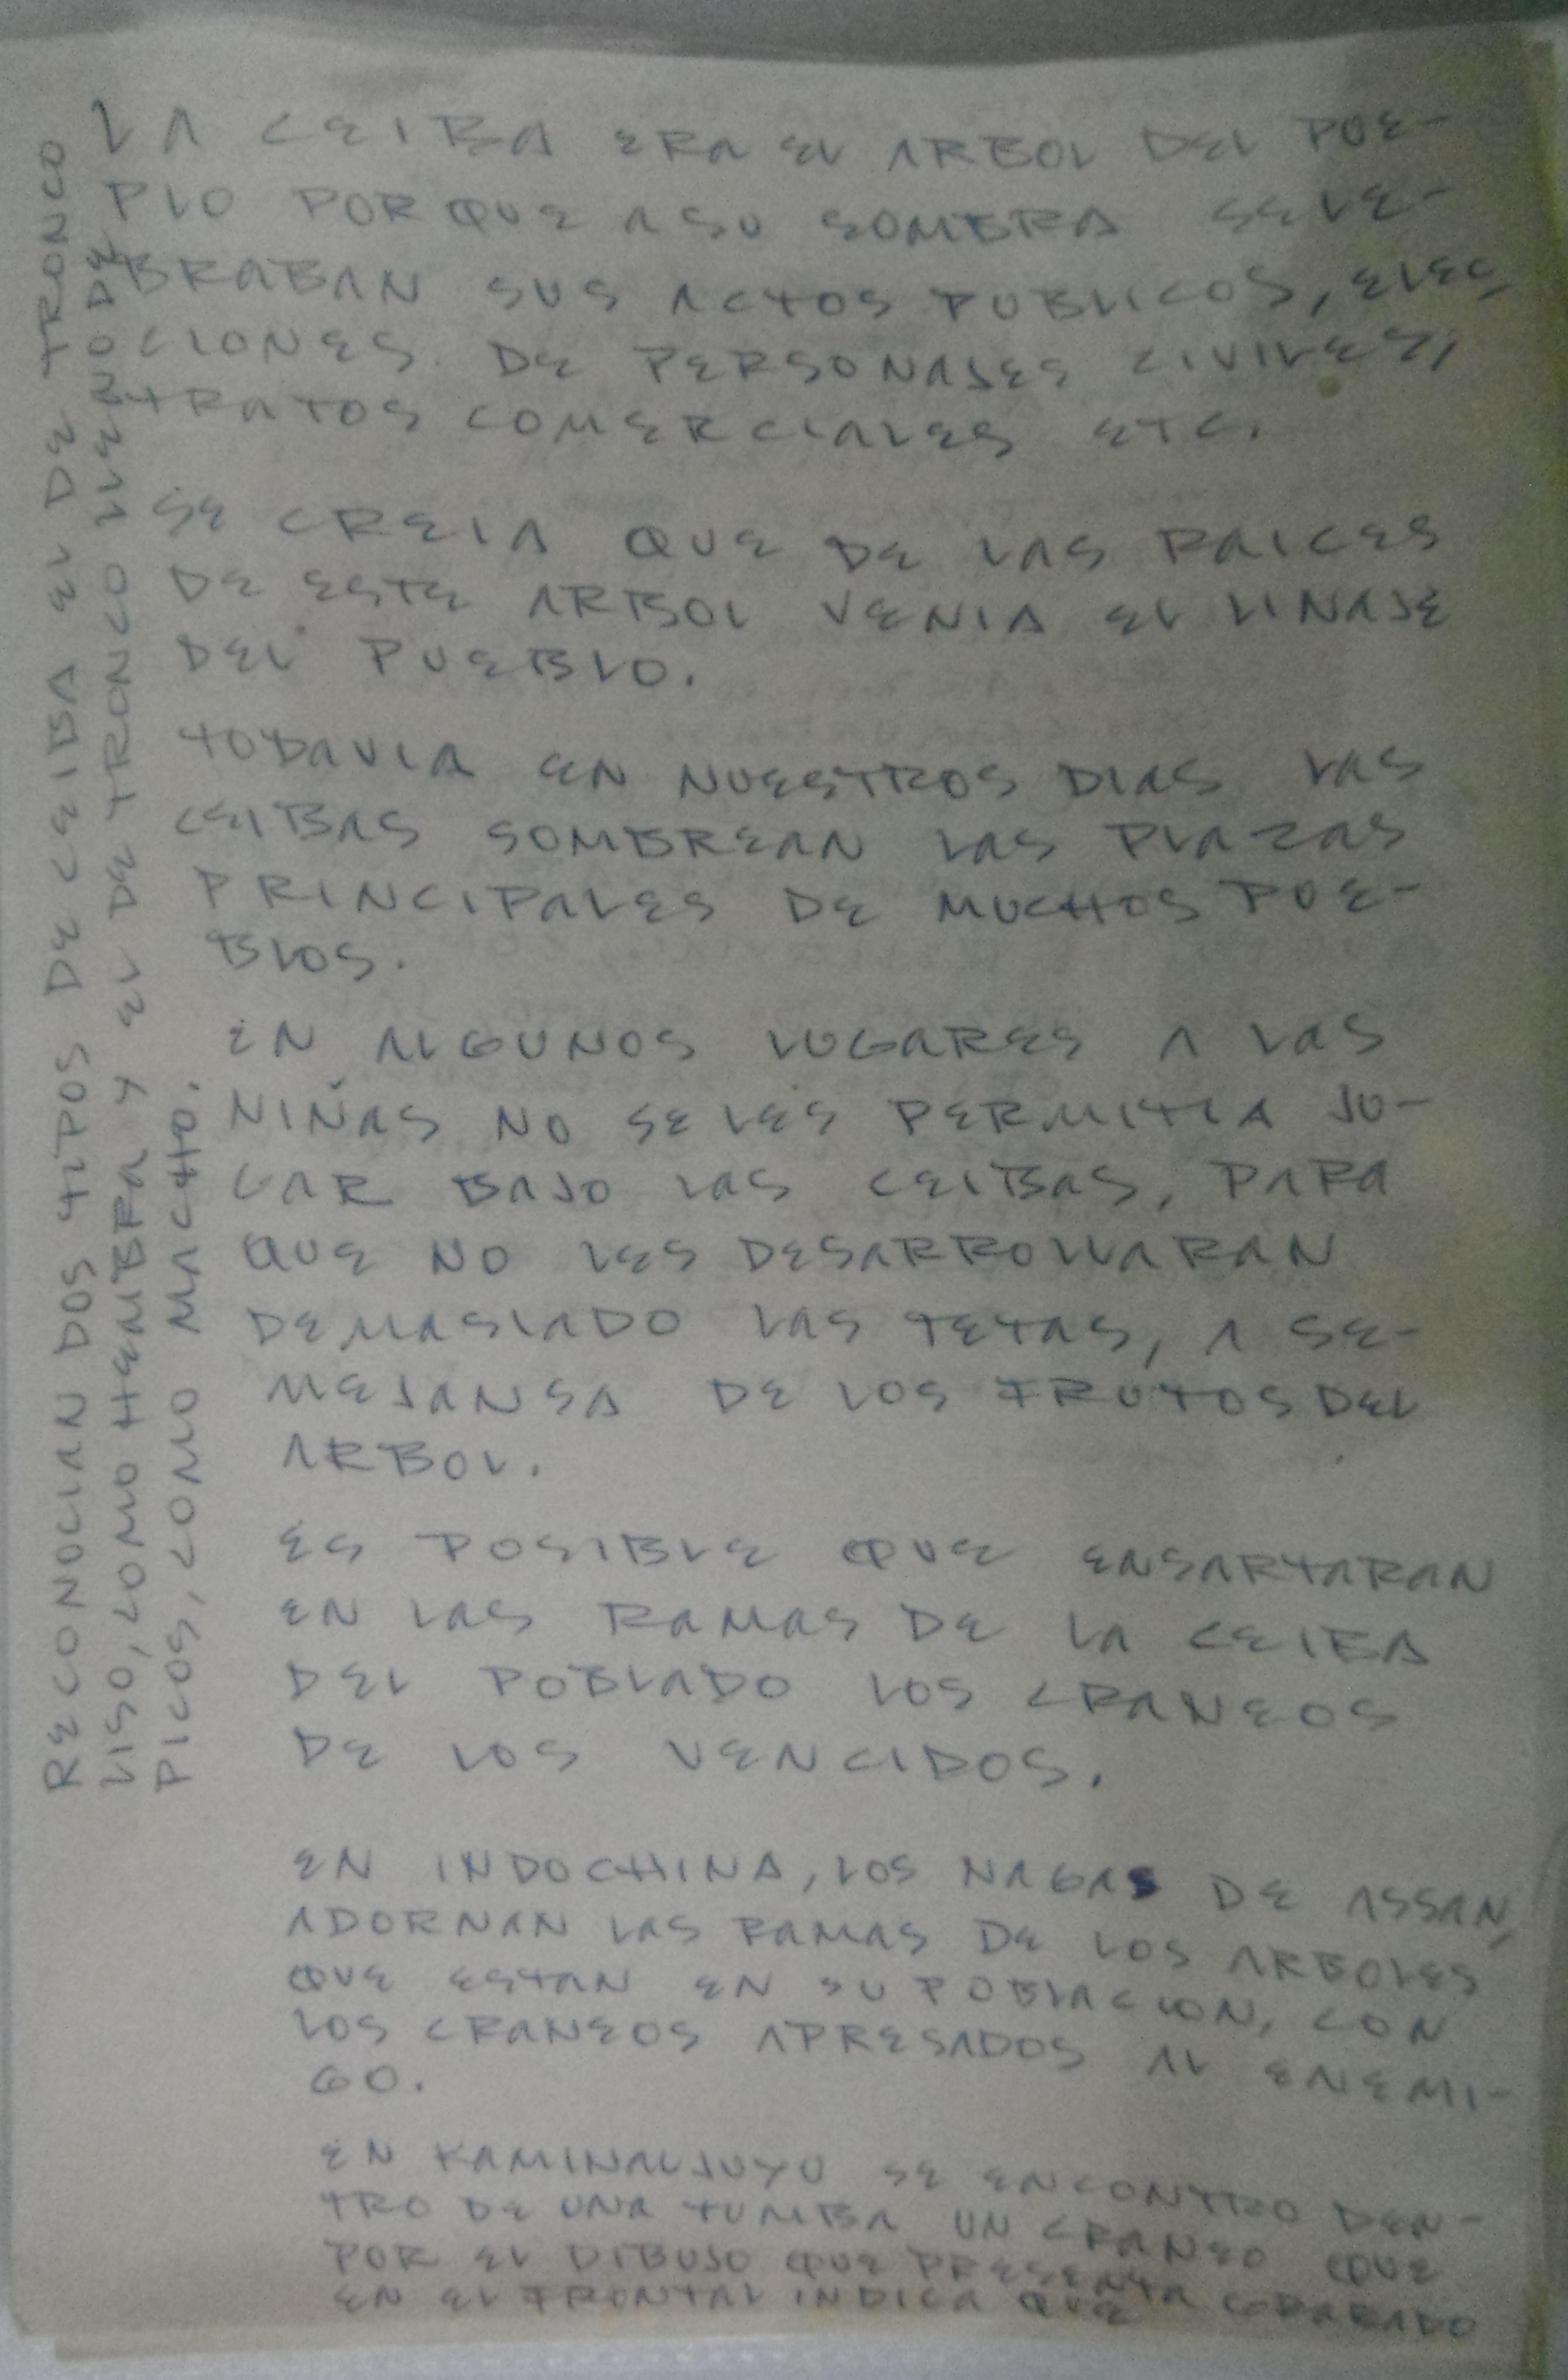 LA CEIBA ERA EL ARBOL DEL PUE-
PLO PORQUE A SU SOMBRA SELE-
BRABAN SUS ACTOS PUBLICOS, ELEC
CIONES DE PERSONAJES CIVILES,
TRATOS COMERCIALES ETC.
SE CREIA QUE DE LAS RAICES
DE ESTE ARBOL VENIA EL LINAJE
DEL PUEBLO.
TODAVIA EN NUESTROS DIAS LAS
CEIBAS SOMBREAN LAS PLAZAS
PRINCIPALES DE MUCHOS PUE-
BLOS.
EN ALGUNOS LUGARES A LAS
NIÑAS NO SE LES PERMITIA JU-
GAR BAJO LAS CEIBAS, PARA
QUE NO LES DESARROLLARAN
DEMASIADO LAS TETAS, A SE-
MEJANSA DE LOS FRUTOS DEL
ARBOL.
ES POSIBLE QUE ENSARTARAN
EN LAS RAMAS DE LA CEIBA
DEL POBLADO LOS CRANEOS
DE LOS VENCIDOS.
EN INDOCHINA, LOS NAGAS DE ASSAN,
ADORNAN LAS RAMAS DE LOS ARBOLES
QUE ESTAN EN SU POBLACION, CON
LOS CRANEOS APRESADOS AL ENEMI-
GO.
EN KAMINALJUYU SE ENCONTRO DEN-
TRO DE UNA TUMBA UN CRANEO QUE
POR EL DIBUJO QUE PRESENTA GRABADO
EN EL FRONTAL INDICA QUE
RECONOCIAN DOS TIPOS DE CEIBA EL DE TRONCO
LISO, COMO HEMBRA Y EL DE TRONCO LLENO DE
PICOS, COMO MACHO.